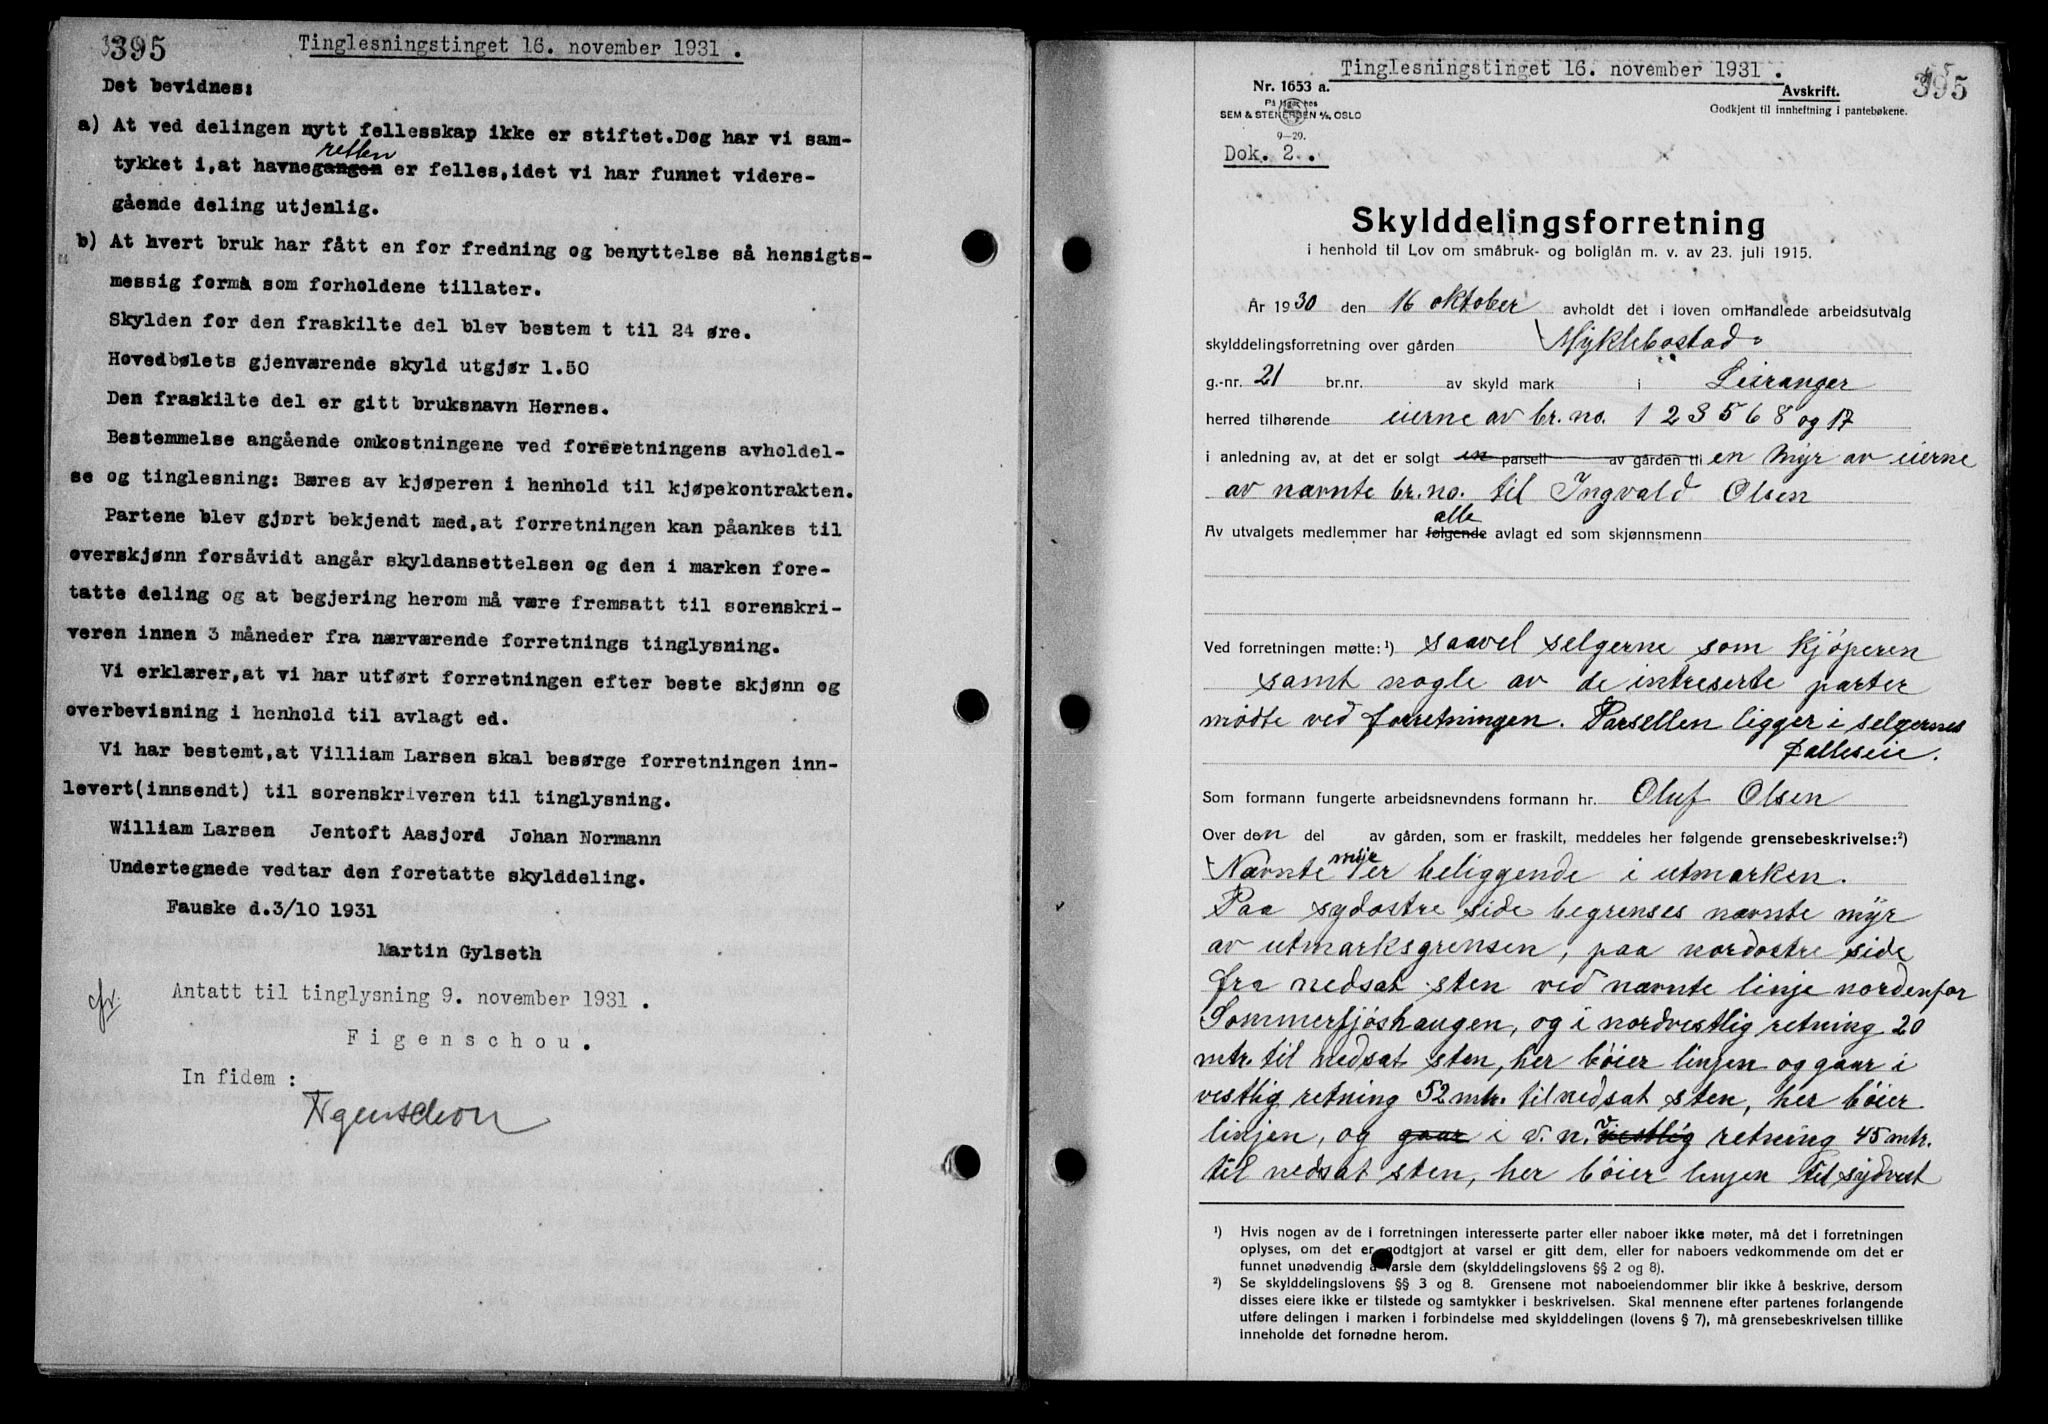 395
Tinglesningstinget 16. november 1931 .
Det bevidnes:
a) At ved delingen nytt fellesskap ikke er stiftet.Dog har vi sam-
retten
tykket i,at havnegangen er felles,idet vi har funnet videre-
gående deling utjenlig.
b) At hvert bruk har fått en for fredning og benyttelse så hensigts-
messig forma som forholdene tillater.
Skylden for den fraskilte del blev bestem t til 24 øre.
Hovedbølets gjenværende skyld utgjør 1.50
Den fraskilte del er gitt bruksnavn Hernes.
Bestemmelse angående omkostningene ved forerretningens avholdel-
se og tinglesning: Bæres av kjøperen i henhold til kjøpekontrakten.
Partene blev gjørt bekjendt med,at forretningen kan påankes til
overskjønn forsåvidt angår skyldansettelsen og den i marken fore-
tatte deling og at begjering herom må være fremsatt til sorenskri-
veren innen 3 måneder fra nærværende forretnings tinglysning.
Vi erklærer,at vi har utført forretningen efter beste skjønn og
overbevisning i henhold til avlagt ed.
Vi har bestemt,at Villiam Larsen skal besørge forretningen inn-
levert(innsendt) til sorenskriveren til tinglysning.
William Larsen Jentoft Aasjord Johan Normann
Undertegnede vedtar den foretatte skylddeling.
Fauske d.3/10 1931
Martin Gylseth
cfr.
Antatt til tinglysning 9. november 1931 .
Figenschou.
In fidem :
Figenschou
Tinglesningstinget 16. november 1931 .
395
Nr. 1653 a.
Avskrift.
På lager hos
Godkjent til innheftning i pantebøkene.
SEM & STENERSEN A/S, OSLO
9—29.
Dok. 2 .
Skylddelingsforretning
i henhold til Lov om småbruk- og boliglån m. v. av 23. juli 1915.
År 1930 den 16 oktober avholdt det i loven omhandlede arbeidsutvalg
skylddelingsforretning over gården Myklebostad
g.-nr. 21 br.nr. av skyld mark i Leiranger
herred tilhørende eierne av br. no. 1 2 3 5 6 8 og 17
i anledning av, at det er solgt en parsell av gården til en myr av eierne
av nævnte br. no. til Ingvald Olsen
alle
Av utvalgets medlemmer har følgende avlagt ed som skjønnsmenn
Ved forretningen møtte:¹) saavel selgerne som kjøperen
samt nogle av de intreserte parter
mødte ved forretningen. Parsellen ligger i selgernes
fælleseie.
Som formann fungerte arbeidsnevndens formann hr. Oluf Olsen
Over den del av gården, som er fraskilt, meddeles her følgende grensebeskrivelse:²)
myr
Nævnte er beliggende i utmarken.
Paa sydøstre side begrenses nævnte myr
av utmarksgrensen, paa nordøstre side
fra nedsat sten ved nævnte linje nordenfor
Sommerfjøshaugen, og i nordvestlig retning 20
mtr. til nedsat sten, her bøier linjen og gaar i
vestlig retning 52 mtr. til nedsat sten, her bøier
linjen, og gaar i v. n. v vestlig retning 45 mtr.
til nedsat sten, her bøier linjen til sydvest
¹) Hvis nogen av de i forretningen interesserte parter eller naboer ikke møter, må det i forretningen
oplyses, om det er godtgjort at varsel er gitt dem, eller for naboers vedkommende om det er
funnet unødvendig å varsle dem (skylddelingslovens §§ 2 og 8).
²) Se skylddelingslovens §§ 3 og 8. Grensene mot naboeiendommer blir ikke å beskrive, dersom
disses eiere ikke er tilstede og samtykker i beskrivelsen. Skal mennene efter partenes forlangende
utføre delingen i marken i forbindelse med skylddelingen (lovens § 7), må grensebeskrivelsen tillike
inneholde det fornødne herom.